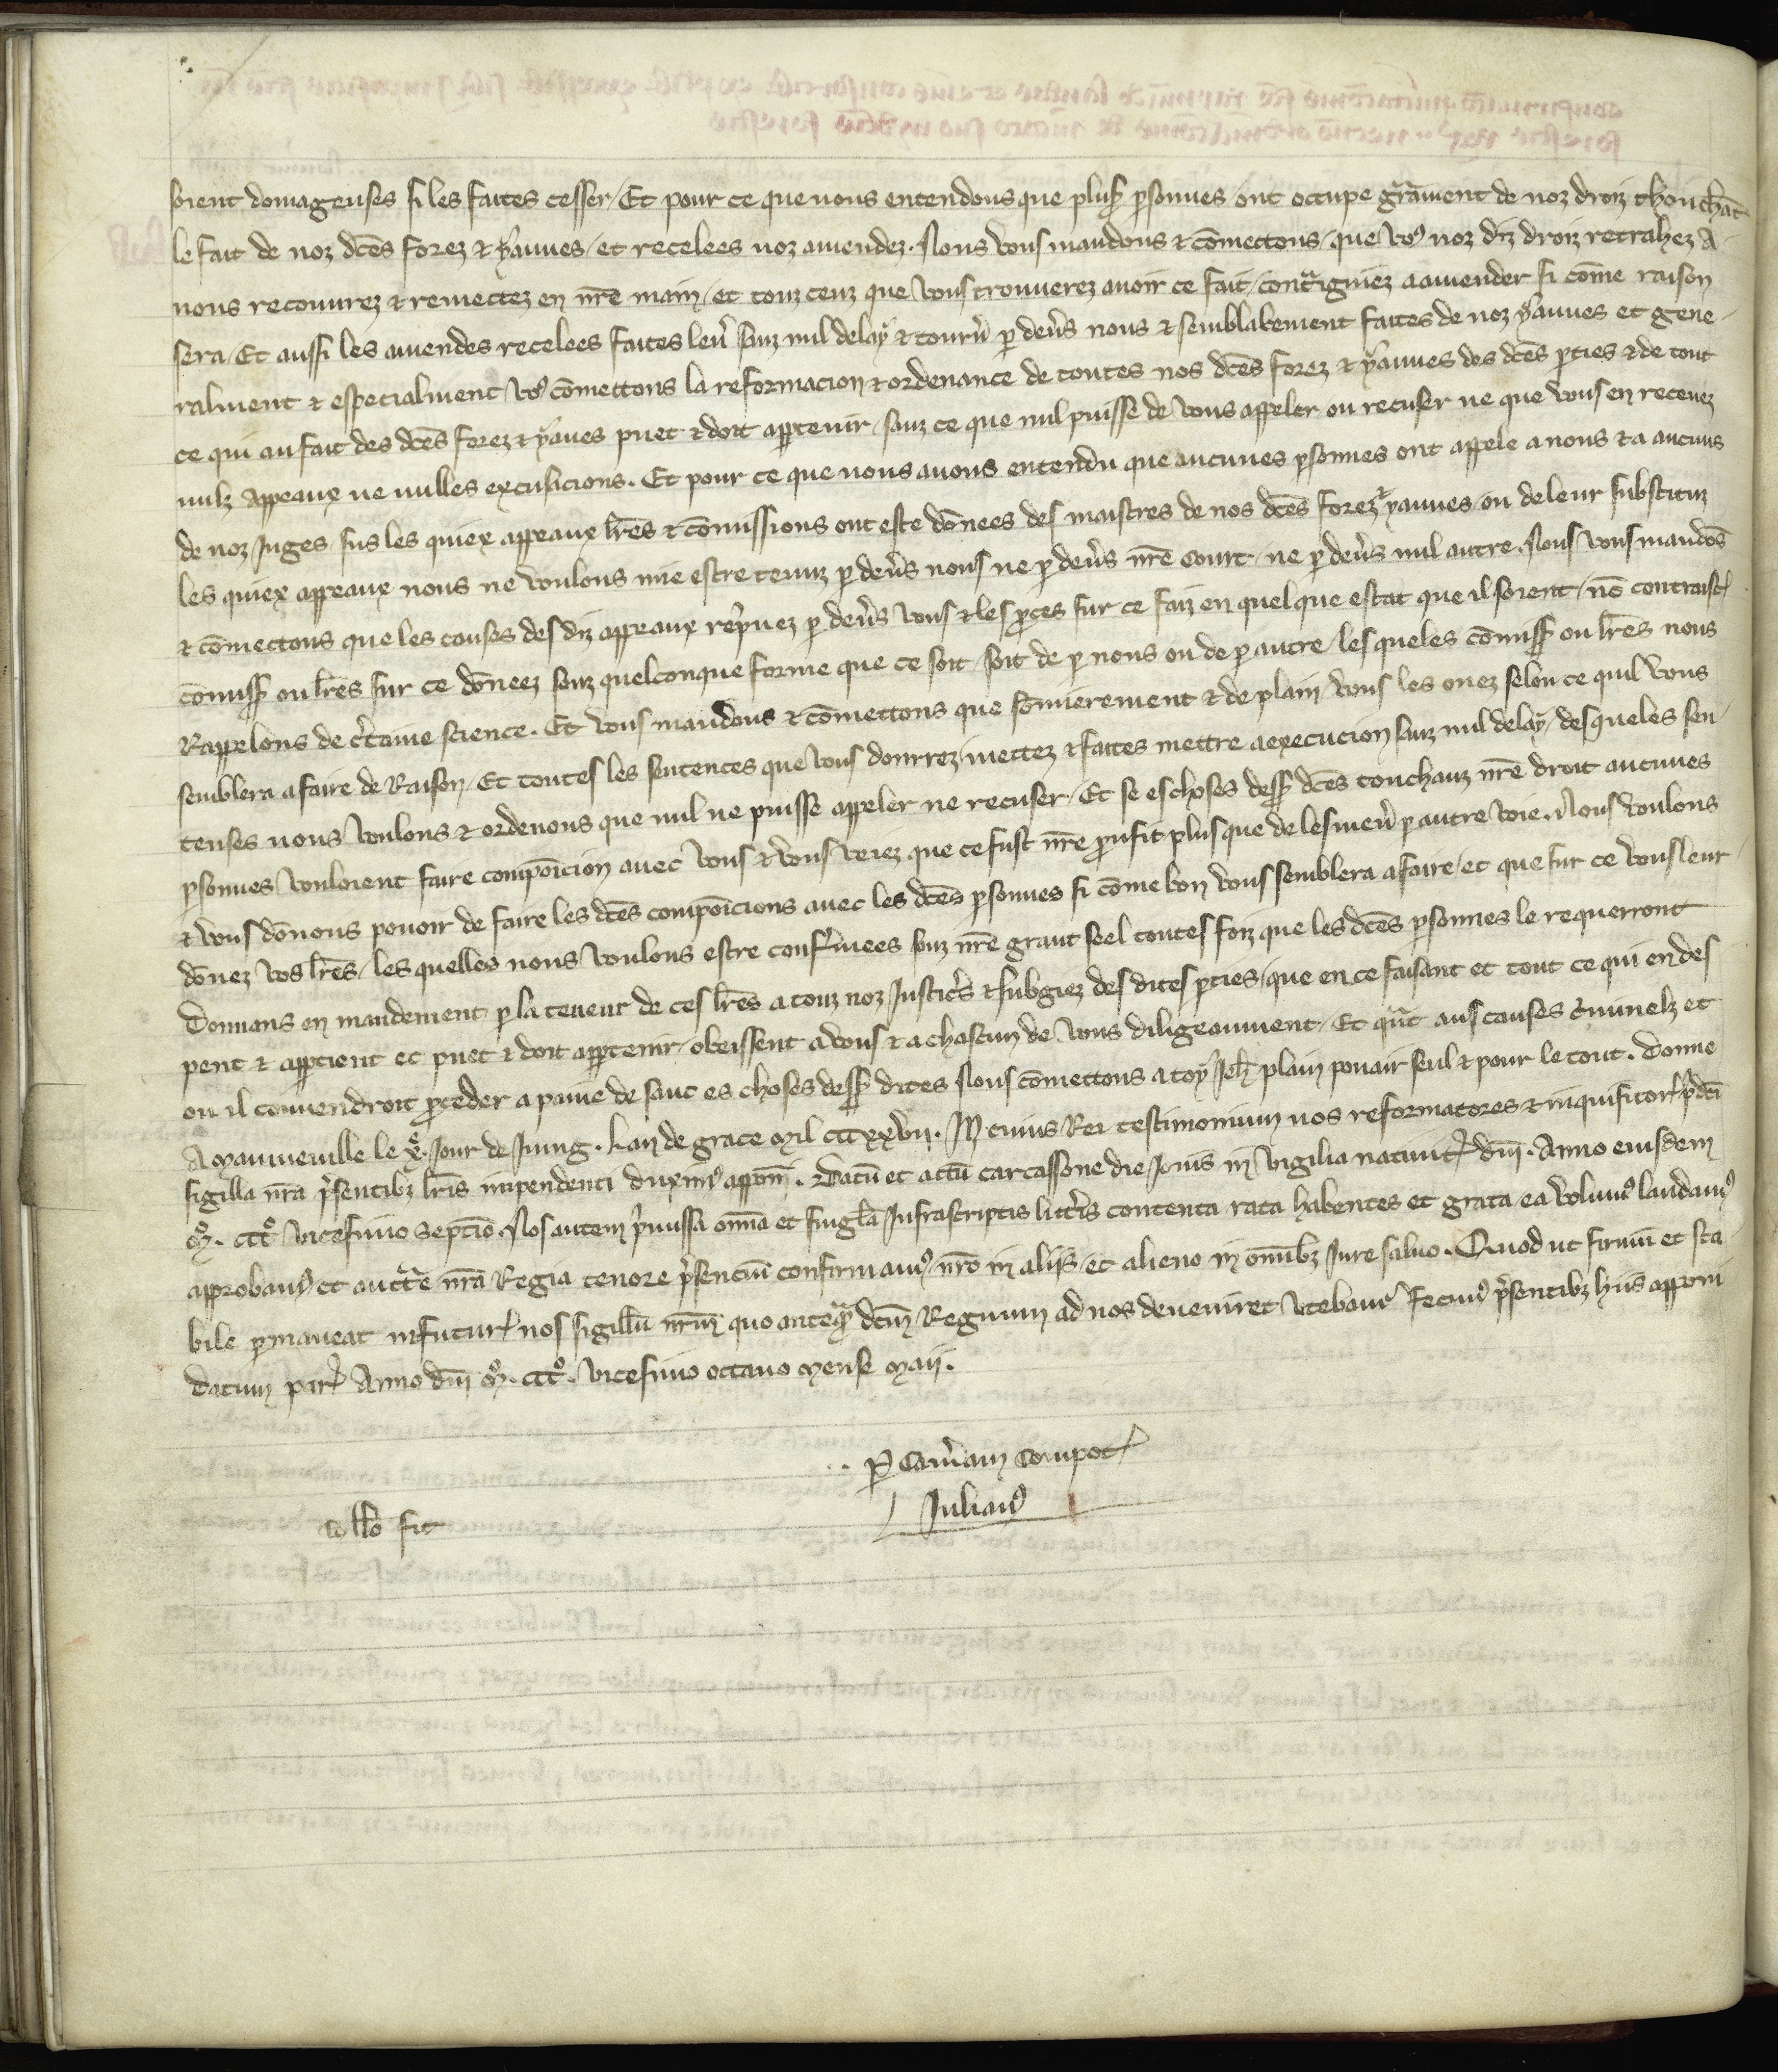 soient domageuses si les faites cesser / Et pour ce que nous entendons que plus͛ ꝑsonnes ont occupe gᷓnment de noz droiz thouchāt
le fait de noz dc̄es forez & yaues / et recelees noz amendez . Nous vous mandons & cōmettons / que voꝰ noz diz droiz retrahez a
nous recouurez & remectez en nr̄e main / et touz ceuz que vous trouuerez auoir ce fait / contᷓigniez a amender si cōme raison
sera / Et aussi les amendes recelees faites leu͛ sanz nul delay & tourn͛ ꝑ deu͛s nous & semblablement faites de noz yaues et gene
ralment & especialment voꝰ cōmettons la reformacion & ordenance de toutes nos dc̄es forez & yaues des dc̄es ꝑties & de tout
ce qui au fait des dc̄es forez & yaues puet & doit apꝑtenir / sanz ce que nul puisse de vous appeler ou recuser ne que vous en receuez
nulz appeaux ne nulles excusicions . Et pour ce que nous auons entendu que aucunes ꝑsonnes ont appele a nous & a aucuns
de noz Juges / sus les quiex appeaux lr̄es & cōmissions ont este dōnees des maistres de nos dc̄es forez & yaues / ou de leur substituz
les quiex appeaux nous ne voulons mie estre tenuz ꝑ deu͛s nous ne ꝑ deu͛s nr̄e court / ne ꝑ deu͛s nul autre . Nous vous mandōs
& cōmectons que les causes des diz appeaux rep͛nez ꝑ deu͛s vous & les ꝓces sur ce faiz en quel que estat que il soient / nō contraist͛
cōmiss͛ ou lr̄es sur ce dōneez souz quelconque forme que ce soit / soit de ꝑ nous ou de ꝑ autre / les queles cōmiss͛ ou lr̄es nous
Rappelons de c͛taine science . Et vous mandons & cōmettons que sōmierement & de plain / vous les oiez selon ce quil vous
semblera a faire de Raison / Et toutes les sentences que vous donrrez / mectez & faites mettre a execucion sanz nul delay / des queles sen
tenses nous voulons & ordenons que nul ne puisse appeler ne recuser / Et se es choses dess͛ dc̄es touchanz nr̄e droit aucunes
ꝑsonnes vouloient faire compōicion auec vous & vous veiez que ce fust nr̄e ꝓufit plus que de les men͛ ꝑ autre voie . Nous voulons
& vous dōnons pouoir de faire les dc̄es compōicions auec les dc̄es ꝑsonnes si cōme bon vous semblera a faire / et que sur ce vous leur
dōnez vos lr̄es / les quelles nous voulons estre conf͛mees souz nr̄e grant seel toutes foiz que les dc̄es ꝑsonnes le requerront
Donnans en mandement ꝑ la teneur de ces lr̄es a touz noz Justic͛s & subgiez des dites ꝑties / que en ce faisant et tout ce qui en des
pent & apꝑtient et puet & doit apꝑtenir / obeissent a vous & a chascun de vous diligeaument / Et qᷓnt aus causes c͛iminelz et
ou il conuendroit ꝓceder a paine de sanc es choses dess͛ dites Nous cōmettons a toy Jeh̄ plain pouair seul & pour le tout . Donne
a Manneuille le xe . Jour de Juing . Lan de grace Mil CCCxxvij . In cuius Rei testimonium nos reformatores & inquisitor͛ p͛dc̄i
sigilla nr̄a p͛sentibꝫ lr̄is inpendenti duximꝰ appōni . Datū et actū Carcassone die Jouis in vigilia natiuit͛ dn̄i . Anno eiusdem
Mo. CCCo vicesimo septīo . Nos autem p͛missa om̄ia et singl̄a Infrascriptis litt͛is contenta rata habentes et grata ea volumꝰ laudamꝰ
approbamꝰ et auctᷓte nr̄a Regia tenore p͛sencium confirmamꝰ / nr̄o in aliis / et alieno in om̄ibꝫ Jure saluo . Quod ut firmū et sta
bile ꝑmaneat in futur͛ nos sigillū nr̄um quo anteqᷓ dc̄m Regnum ad nos deueniret vtebamr fecimꝰ p͛sentibꝫ hiis apponi
Datum par͛ Anno dn̄i Mo. CCCo . vicesimo octauo Mense Maij .
ꝑ Cam͛am Compot͛
Julianꝰ
coll̄o fit